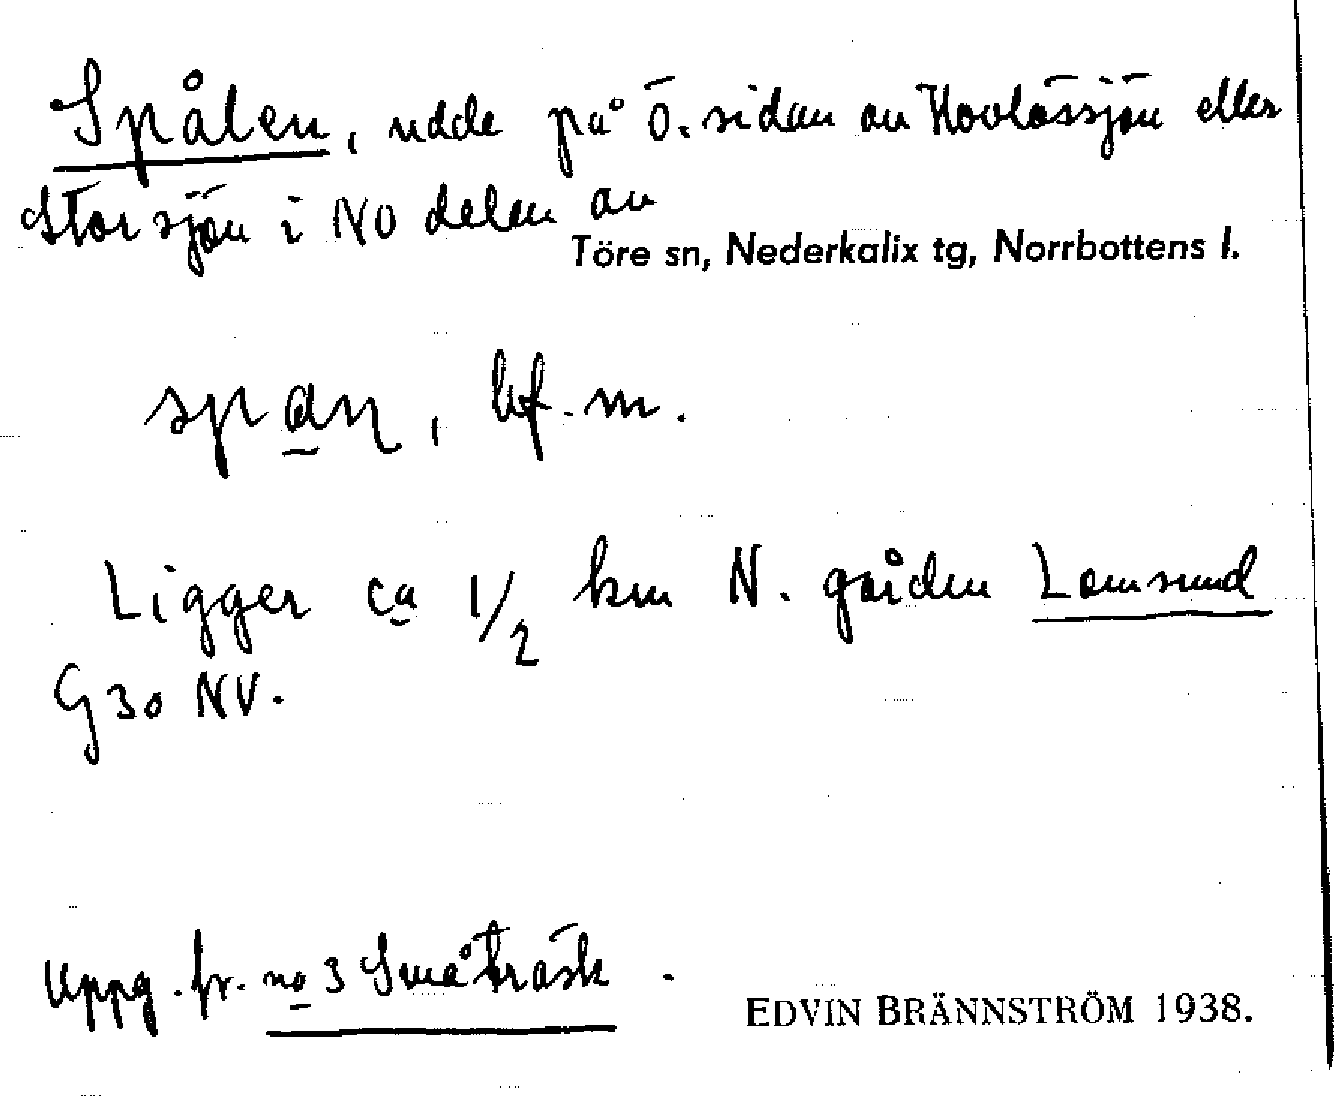 Spålen, udde på Ö. sidan av Hovlössjön eller
Storsjön i NO delen av
Töre sn, Nederkalix tg, Norrbottens l.
bf. m.
Ligger ca 1/2 km N. gården Lomsund
G 30 NV.
Uppg. fr. no 3 Småträsk.
EDVIN BRÄNNSTRÖM 1938.